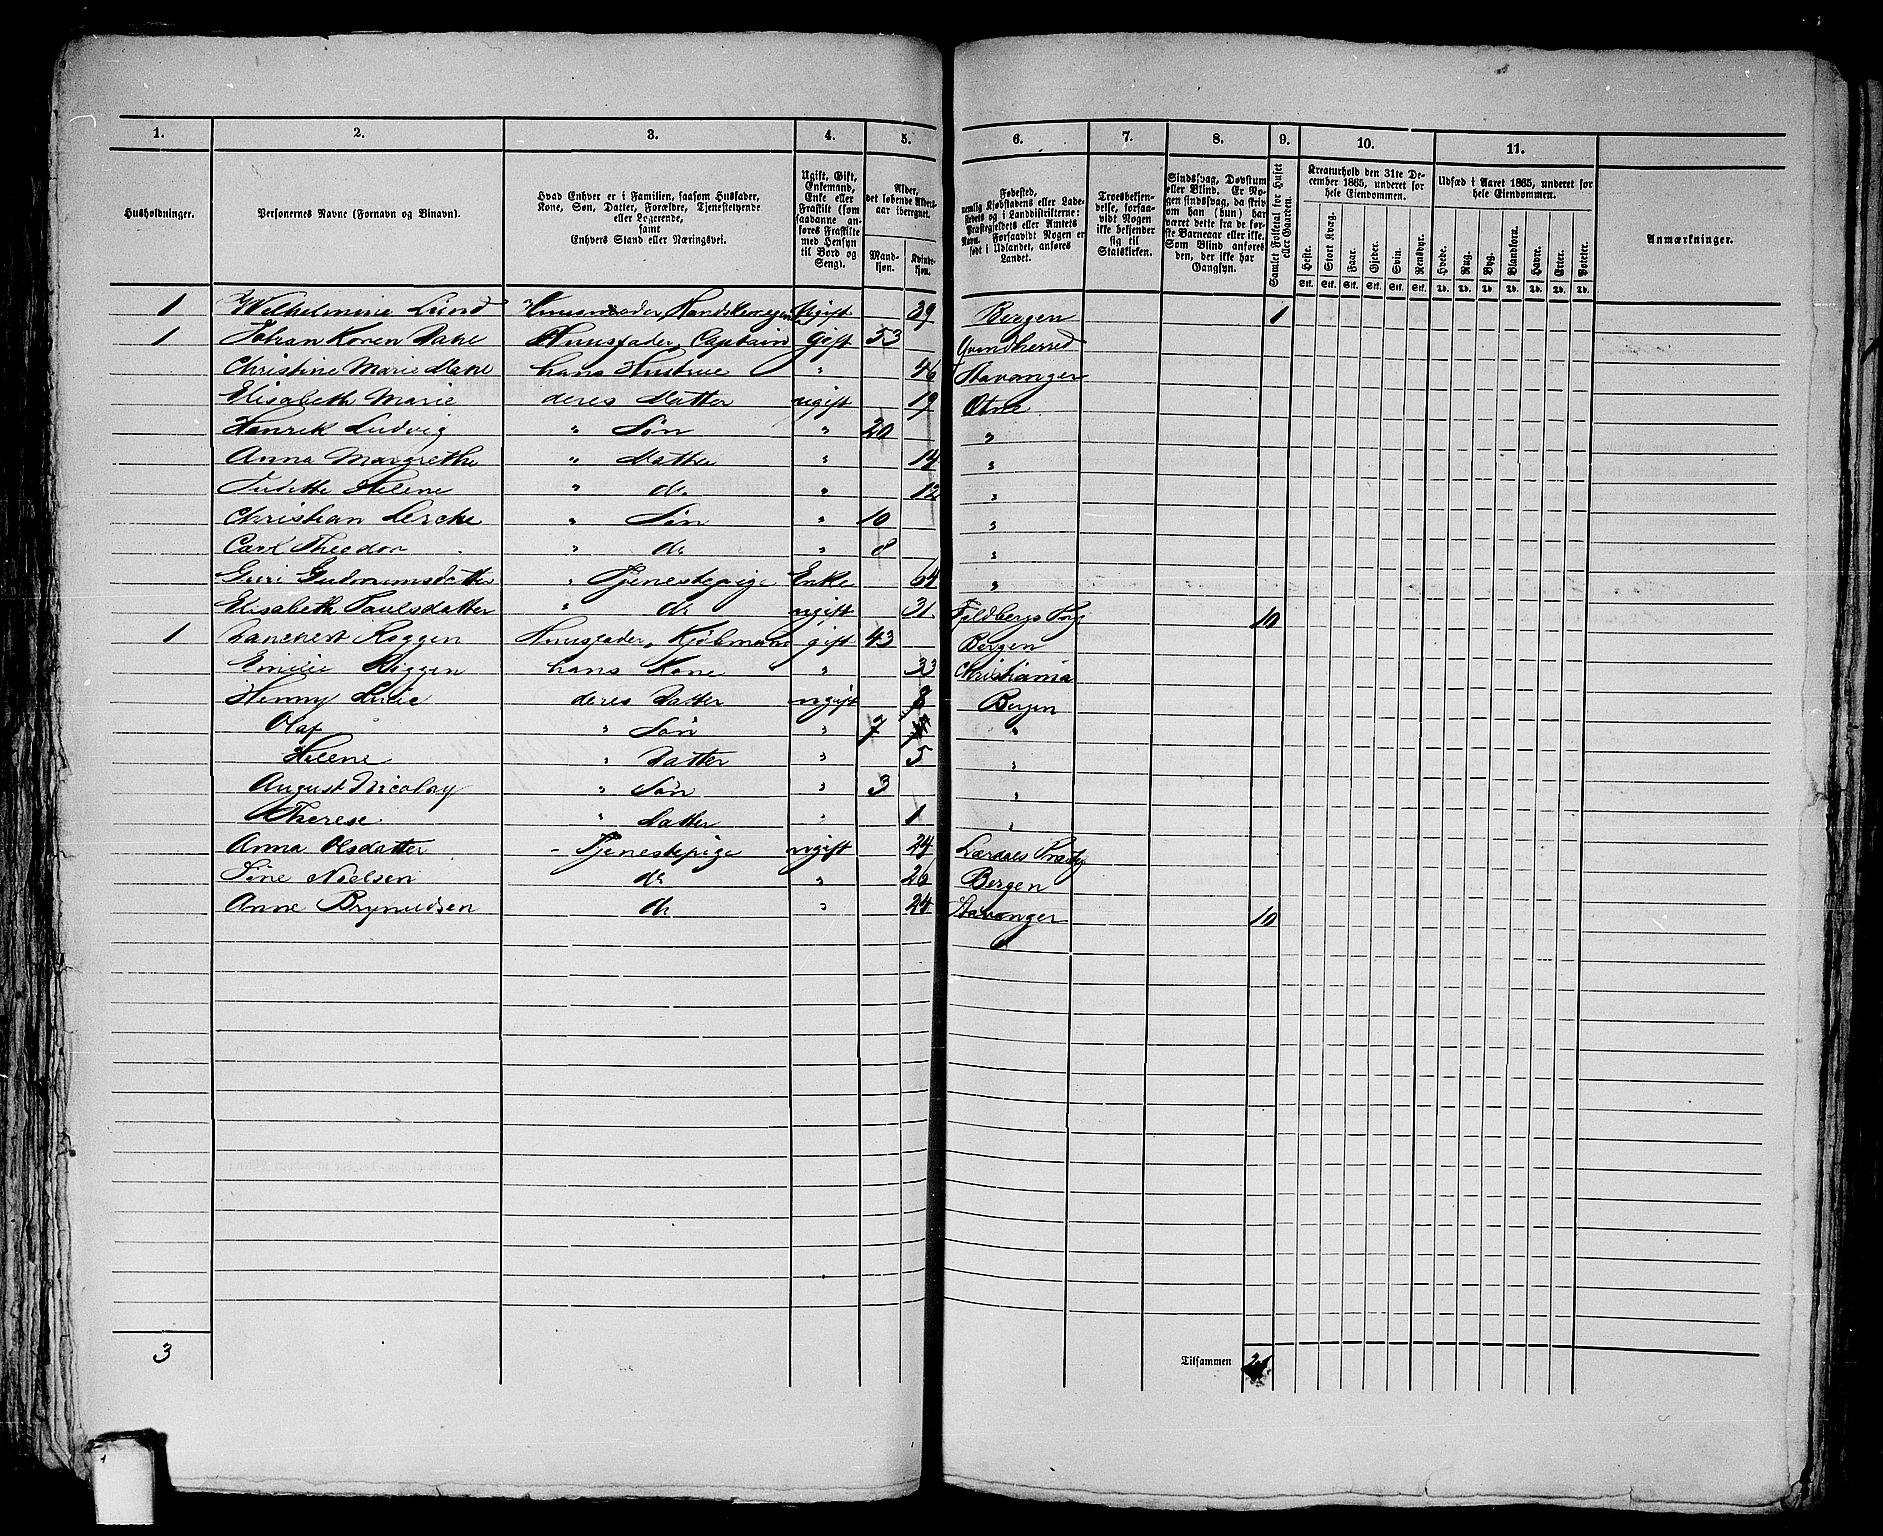 1. 2. 3. 4. 5. 6. 7. 8. 9. 10. 11.
Husholdninger.
Personernes Navne (Fornavn og Binavn).
Hvad Enhver er i Familien, saasom Husfader, Kone, Søn, Datter, Forældre, Tjenestetyende eller Logerende, samt Enhvers Stand eller Næringsvei.
Ugift, Gift, Enkemand, Enke eller Fraskilt (som saadanne anføres Fraskilte med Hensyn til Bord og Seng).
Alder, det løbende Alders-aar iberegnet.
Mandkjøn. Kvindekjøn.
Fødested, nemlig Kjøbstadens eller Ladestedets og i Landdistrikterne: Præstegjeldets eller Amtets Navn. Forsaavidt Nogen er født i Udlandet, anføres Landet.
Troesbekjendelse, forsaavidt Nogen ikke bekjender sig til Statskirken.
Sindssvag, Døvstum eller Blind. Er Nogen sindssvag, da skriv om han (hun) har været dette fra de første Barneaar eller ikke. Som Blind anføres den, der ikke har Gangsyn.
Samlet Folketal for Huset eller Gaarden.
Kreaturhold den 31te December 1865, underet for hele Eiendommen.
Heste. Stort Kvæg. Faar. Gjeder. Svin. Rensdyr.
Stk. Stk. Stk. Stk. Stk. Stk.
Udsæd i Aaret 1865, underet for hele Eiendommen.
Hvede. Rug. Byg. Blandkorn. Havre. Erter. Poteter.
Td. Td. Td. Td. Td. Td. Td.
Anmærkninger.
1 Wilhelmine Lund ugift 39 Bergen 1
1 Johan Koren Dahl Huusfader, Captain Gift 53 Qvindherred
Christine Marie Dahl hans Hustrue " 46 Stavanger
Elisabeth Marie deres Datter ugift 19 Etne
Henrik Ludvig " Søn " 20 "
Anna Margrethe " Datter " 14 "
Helene " do " 12 "
Christian Lerche " Søn " 10 "
Carl Theodor " do " 8 "
Guri Gudmunsdatter " Tjenestepige Enke 64 "
Elisabeth Paulsdatter " do ugift 31 10
1 Huusfader, Kjøbmand gift 43 Bergen
Emilie hans Kone " 33 Christiania
Henny Lucie deres Datter ugift 8 Bergen
Olaf " Søn " 7 "
Helene " Datter " 5 "
August Nicolay " Søn " 3 "
Therese " Datter " 1 "
Anna Olsdatter - Tjenestepige ugift 24 Lærdals
Sine Nielsen do " 26 Bergen
Anne Brynildsen do " 24 Stavanger 10
3 Tilsammen 21